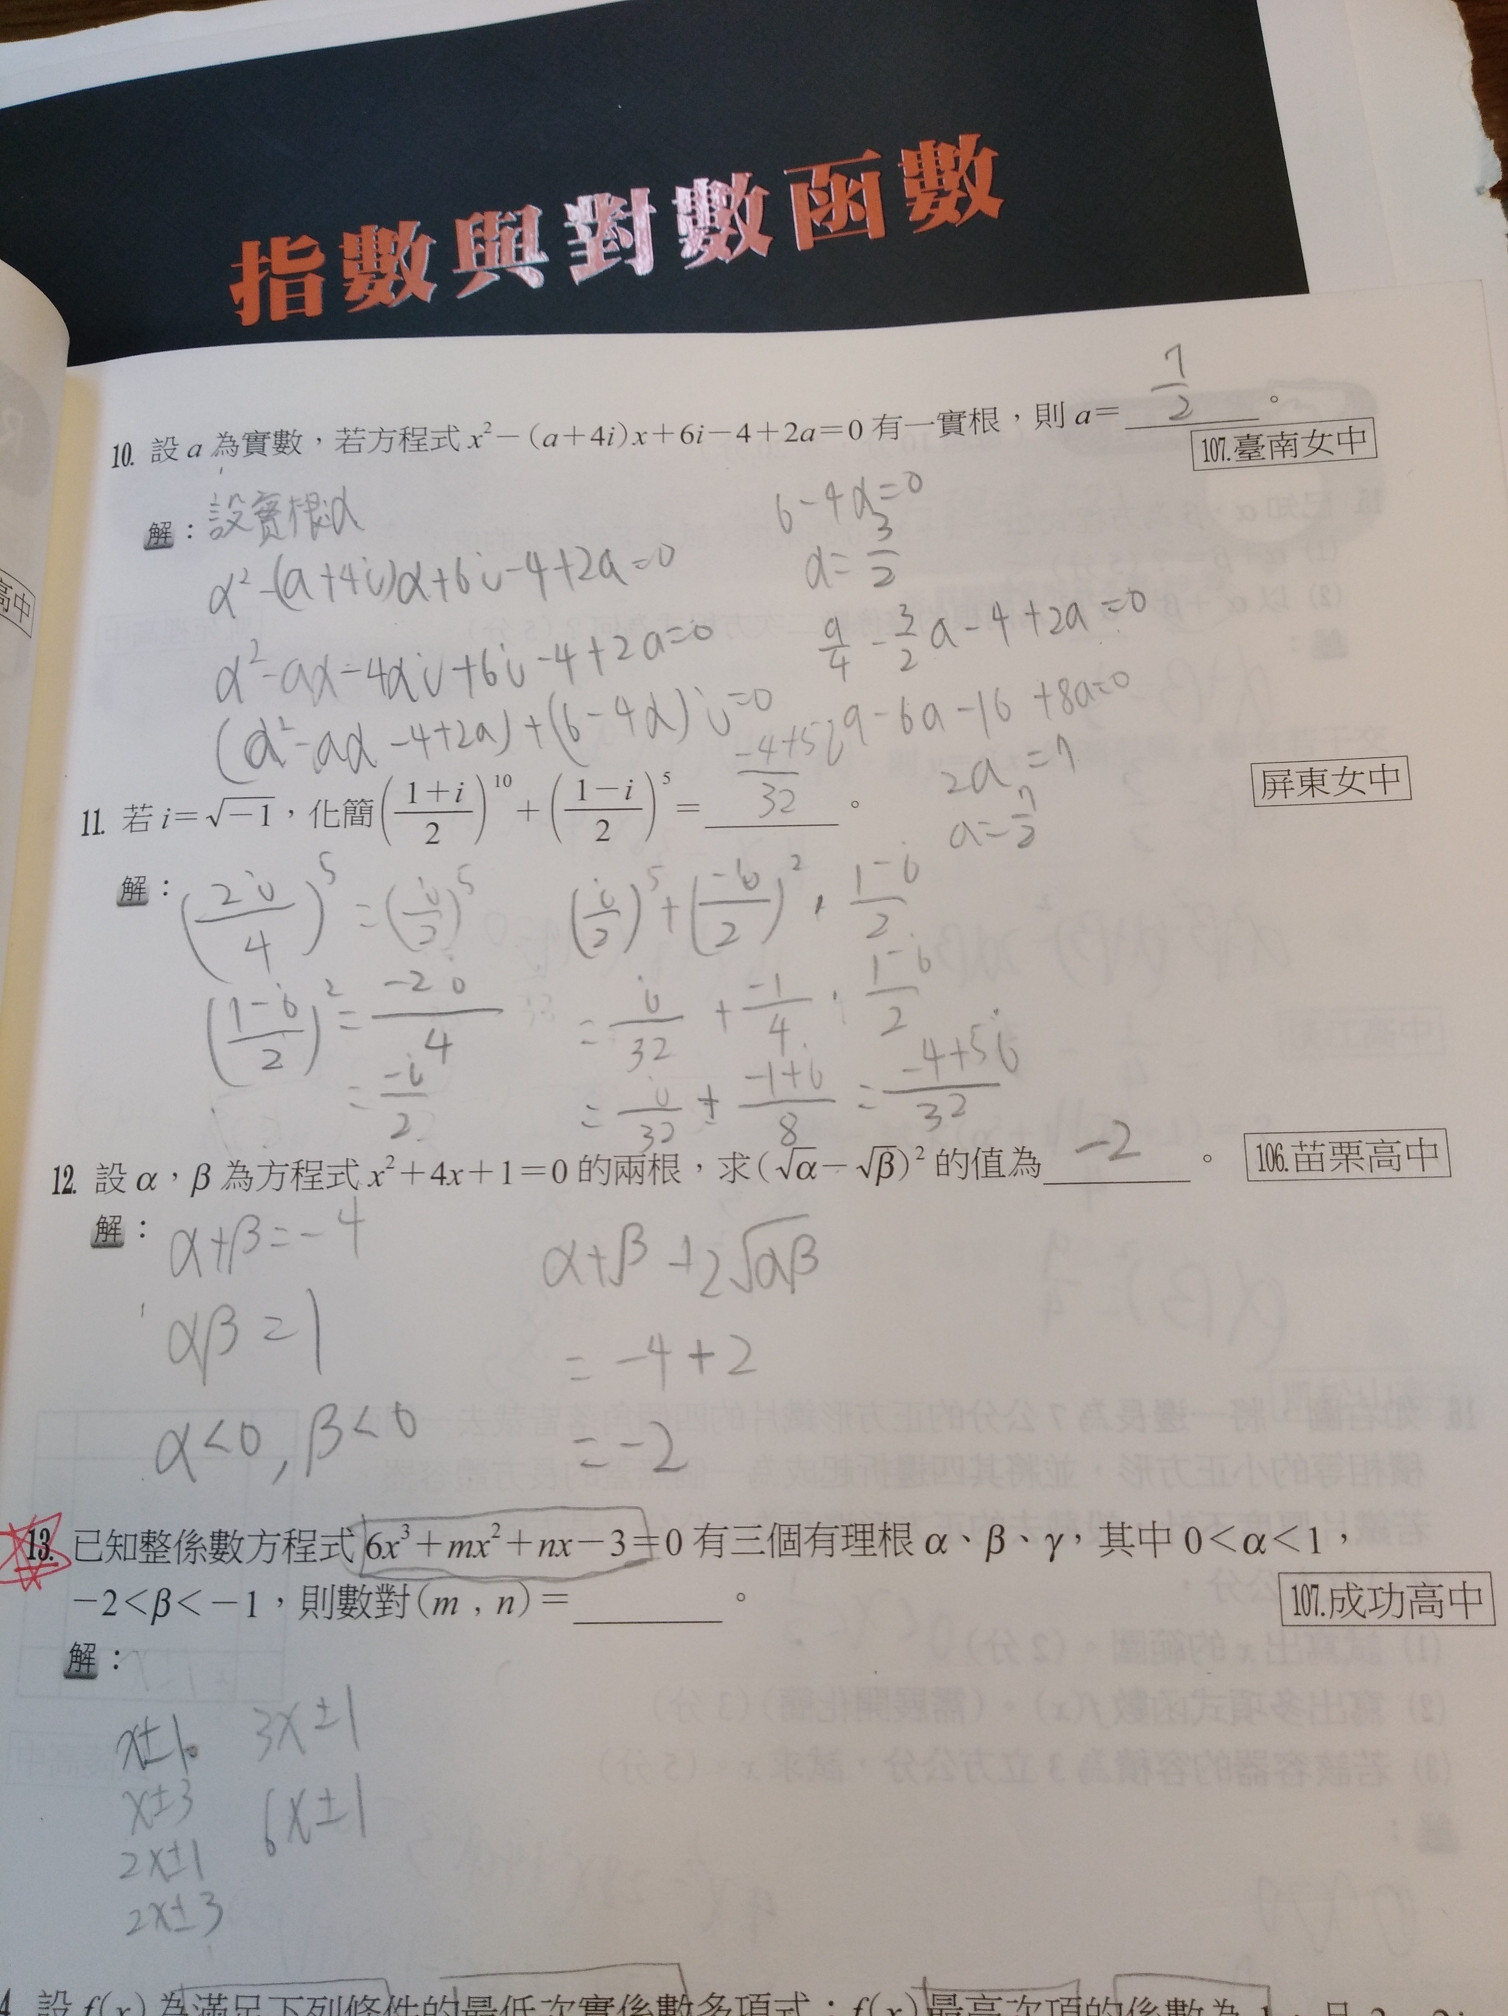 指數與對數函數
10. 設 a 為實數，若方程式 x²－(a＋4i)x＋6i－4＋2a＝0 有一實根，則 a＝ 7/2 。
107.臺南女中
解：設實根α
α²-(a+4i)α+6i-4+2a=0
α²-aα-4αi+6i-4+2a=0
(α²-aα-4+2a)+(6-4α)i=0
6-4α=0
α=3/2
9/4-3/2a-4+2a=0
9-6a-16+8a=0
2a=7
a=7/2
11. 若 i＝√－1，化簡((1＋i)/2)¹⁰＋((1－i)/2)⁵＝ (-4+5i)/32 。
屏東女中
解：(2i/4)⁵=(i/2)⁵
((1-i)/2)²=-2i/4
=-i/2
(i/2)⁵+(-i/2)²·(1-i)/2
=i/32+-1/4·(1-i)/2
=i/32+(-1+i)/8=(-4+5i)/32
12. 設 α，β 為方程式 x²＋4x＋1＝0 的兩根，求(√α－√β)² 的值為 -2 。
106.苗栗高中
解：α+β=-4
αβ=1
α<0,β<0
α+β+2√αβ
=-4+2
=-2
13. 已知整係數方程式 6x³＋mx²＋nx－3＝0 有三個有理根 α、β、γ，其中 0＜α＜1，
－2＜β＜－1，則數對(m，n)＝ 。
107.成功高中
解：
x±1 3x±1
x±3 6x±1
2x±1
2x±3
4 設 f(x) 為滿足下列條件的最低次實係數多項式：f(x)最高次項的係數為